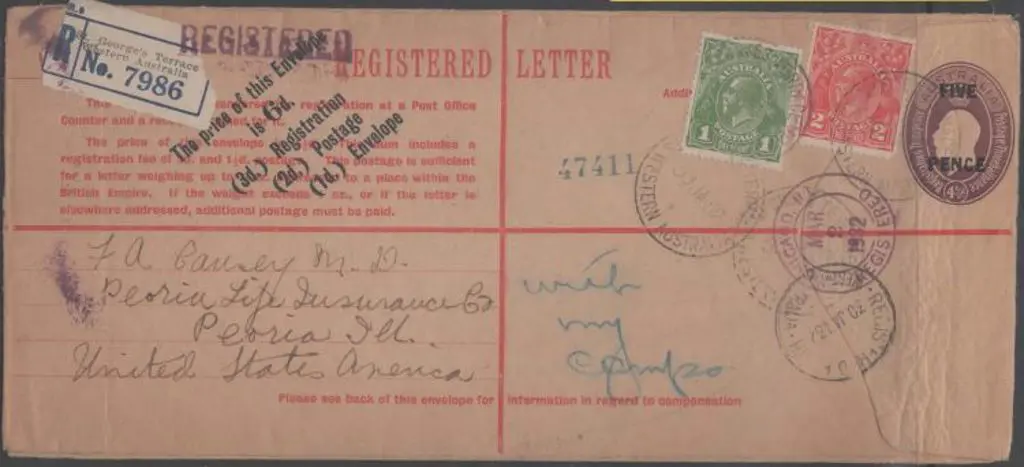 R
St. George's Terrace
Western Australia
No. 7986
REGISTERED
REGISTERED LETTER
The price of this Envelope
is 6d.
(3d.) Registration
(2d.) Postage
(1d.) Envelope
registration at a Post Office
Counter and a
The price of includes a
registration fee of and 1½d. postage. This postage is sufficient
for a letter weighing up to to a place within the
British Empire. If the weight exceeds oz., or if the letter is
elsewhere addressed, additional postage must be paid.
47411
AUSTRALIA
1 POSTAGE 1
AUSTRALIA
2 2
AUSTRALIA
FIVE
PENCE
(4½d)
WESTERN AUSTRALIA
REGISTERED
MAR
1932
F A Causey M. D.
Peoria Life Insurance Co
Peoria Ill.
United States America
with
my
Please see back of this envelope for information in regard to compensation